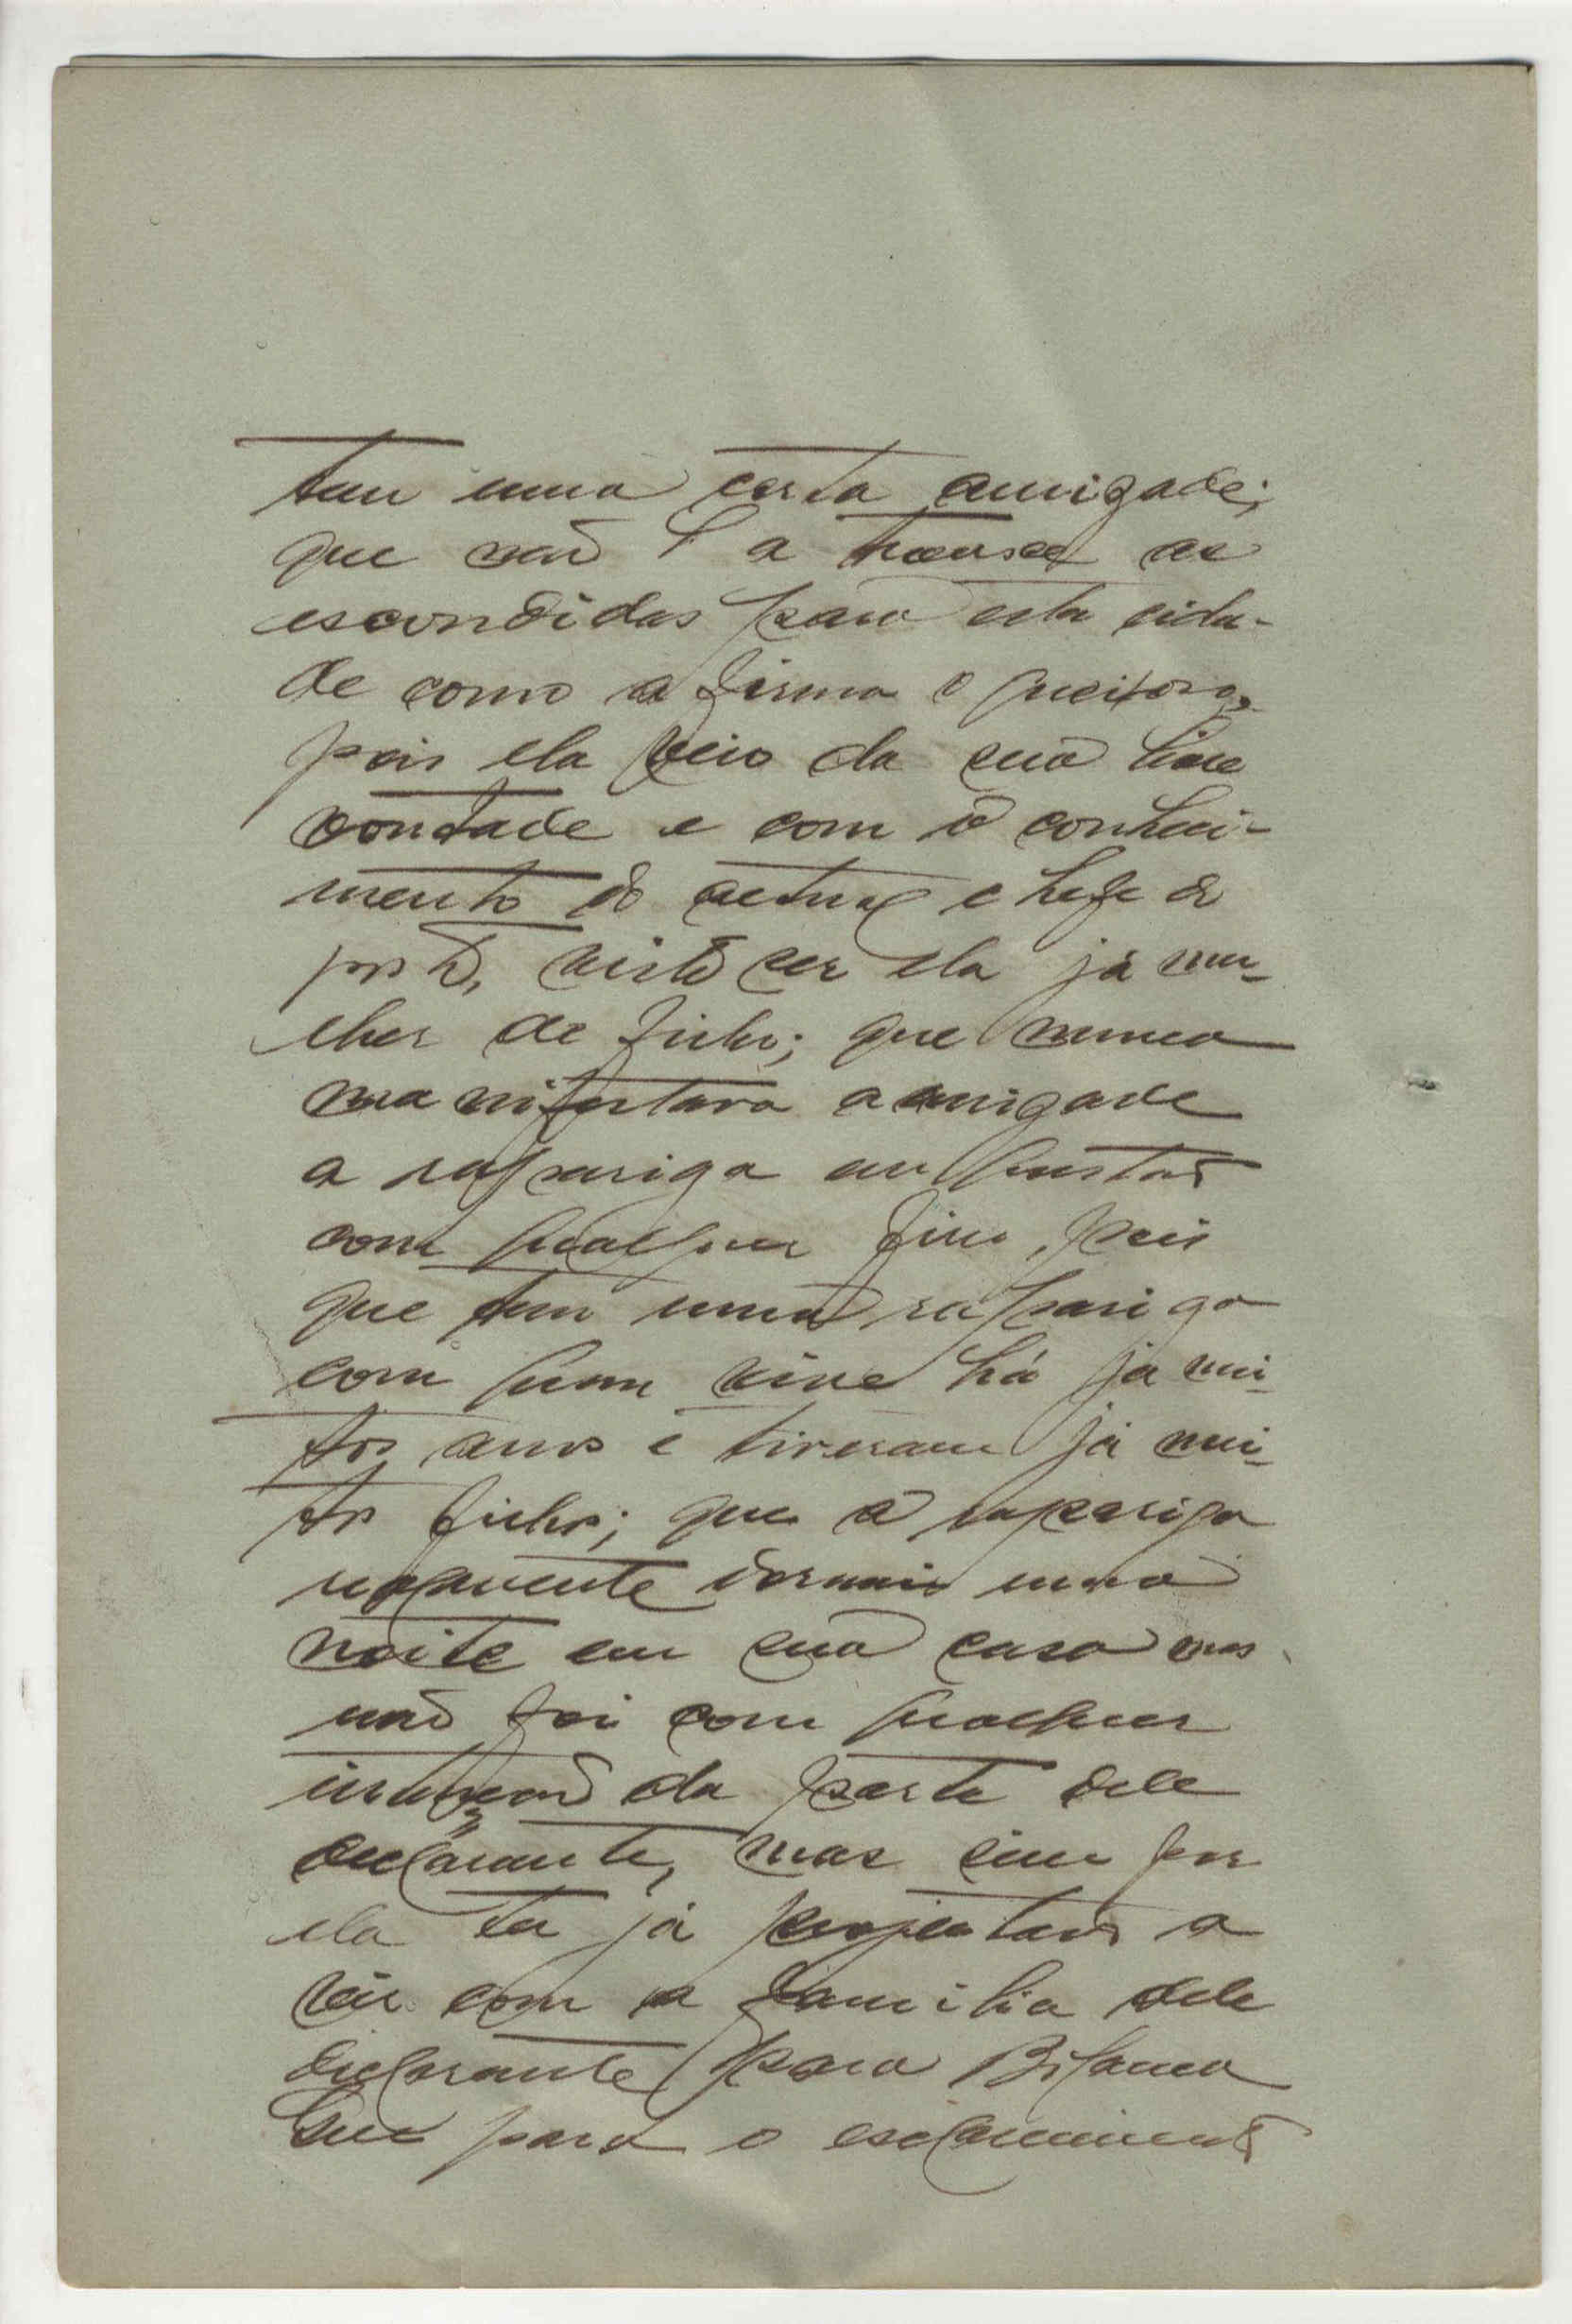 tem uma certa amizade;
que não a trousse as
escondidas para esta cida-
de como afirma o queixoso,
pois ela veio da sua livre
vontade e com o conheci-
mento do actual chefe do
posto, visto ser ela já mu-
lher de filho; que nunca
manifestara amizade
a rapariga em questão
com qualquer fim, pois
que tem uma rapariga
com quem vive há já mui-
tos anos e tiveram já mui-
tos filhos; que a rapariga
realmente dormiu uma
noite em sua casa mas
não foi com qualquer
intenção da parte dele
declarante, mas sim por
ela ter já projectado a
vir com a familia dele
declarante para Bolama
Que para o esclarecimento